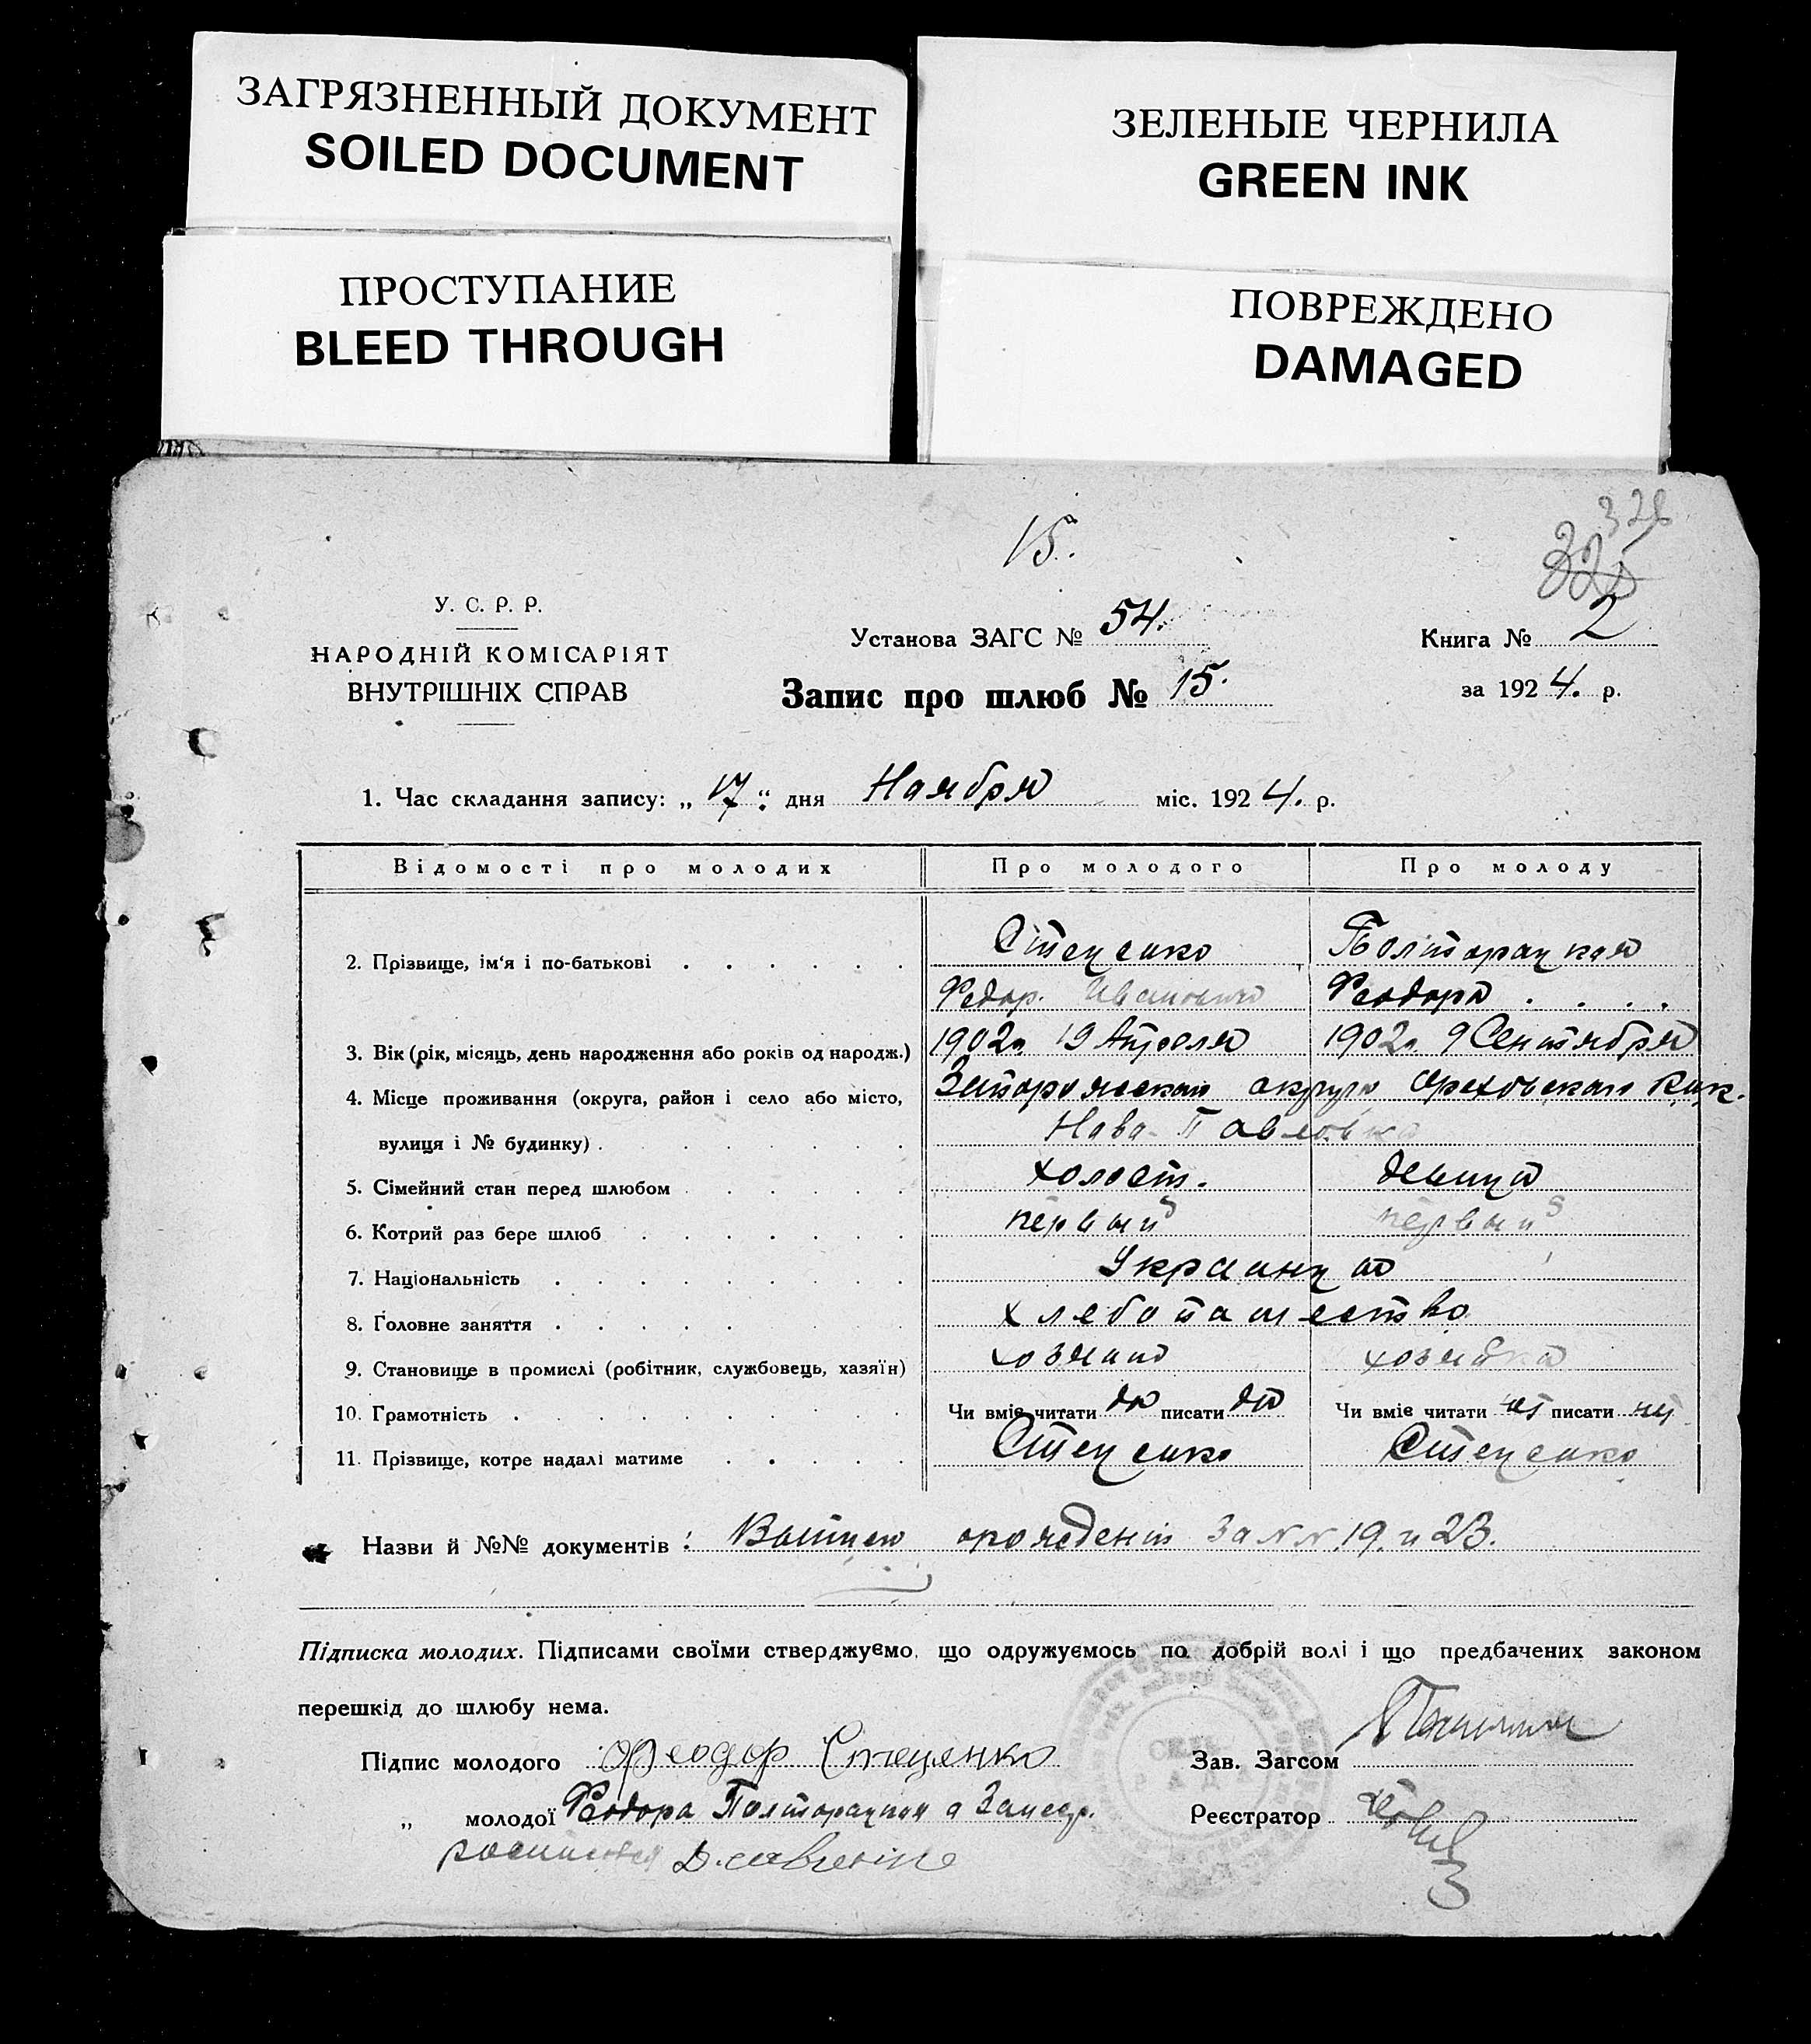 ЗАГРЯЗНЕННЫЙ ДОКУМЕНТ
SOILED DOCUMENT
ЗЕЛЕНЫЕ ЧЕРНИЛА
GREEN INK
ПРОСТУПАНИЕ
BLEED THROUGH
ПОВРЕЖДЕНО
DAMAGED
326
325
15.
У. С. Р. Р.
НАРОДНІЙ КОМІСАРІЯТ
ВНУТРІШНІХ СПРАВ
Установа ЗАГС № 54.
Книга № 2
Запис про шлюб № 15.
за 1924. р.
1. Час складання запису: „ 17 “ дня Наября міс. 1924. р.
Відомості про молодих Про молодого Про молоду
2. Прізвище, ім'я і по-батькові Стеценко Полторацкая
Федор. Иванович Феодора
3. Вік (рік, місяць, день народження або років од народж.) 1902г. 19 Апреля 1902г. 9 Сентября
4. Місце проживання (округа, район і село або місто, Запорожской округи Ореховского
вулиця і № будинку) Нава-Павловка
5. Сімейний стан перед шлюбом холост. девица
6. Котрий раз бере шлюб первый первый
7. Національність Украинца
8. Головне заняття хлебопашество
9. Становище в промислі (робітник, службовець, хазяїн) хозяин хозяйка
10. Грамотність Чи вміє читати да писати да Чи вміє читати нет писати нет
11. Прізвище, котре надалі матиме Стеценко Стеценко
Назви й №№ документів: орождении за NN. 19. и 23.
Підписка молодих. Підписами своїми стверджуємо, що одружуємось по добрій волі і що предбачених законом
перешкід до шлюбу нема.
Підпис молодого Феодор Стеценко
Зав. Загсом
„ молодої Феодора Полторацкая а За неегр.
Реєстратор